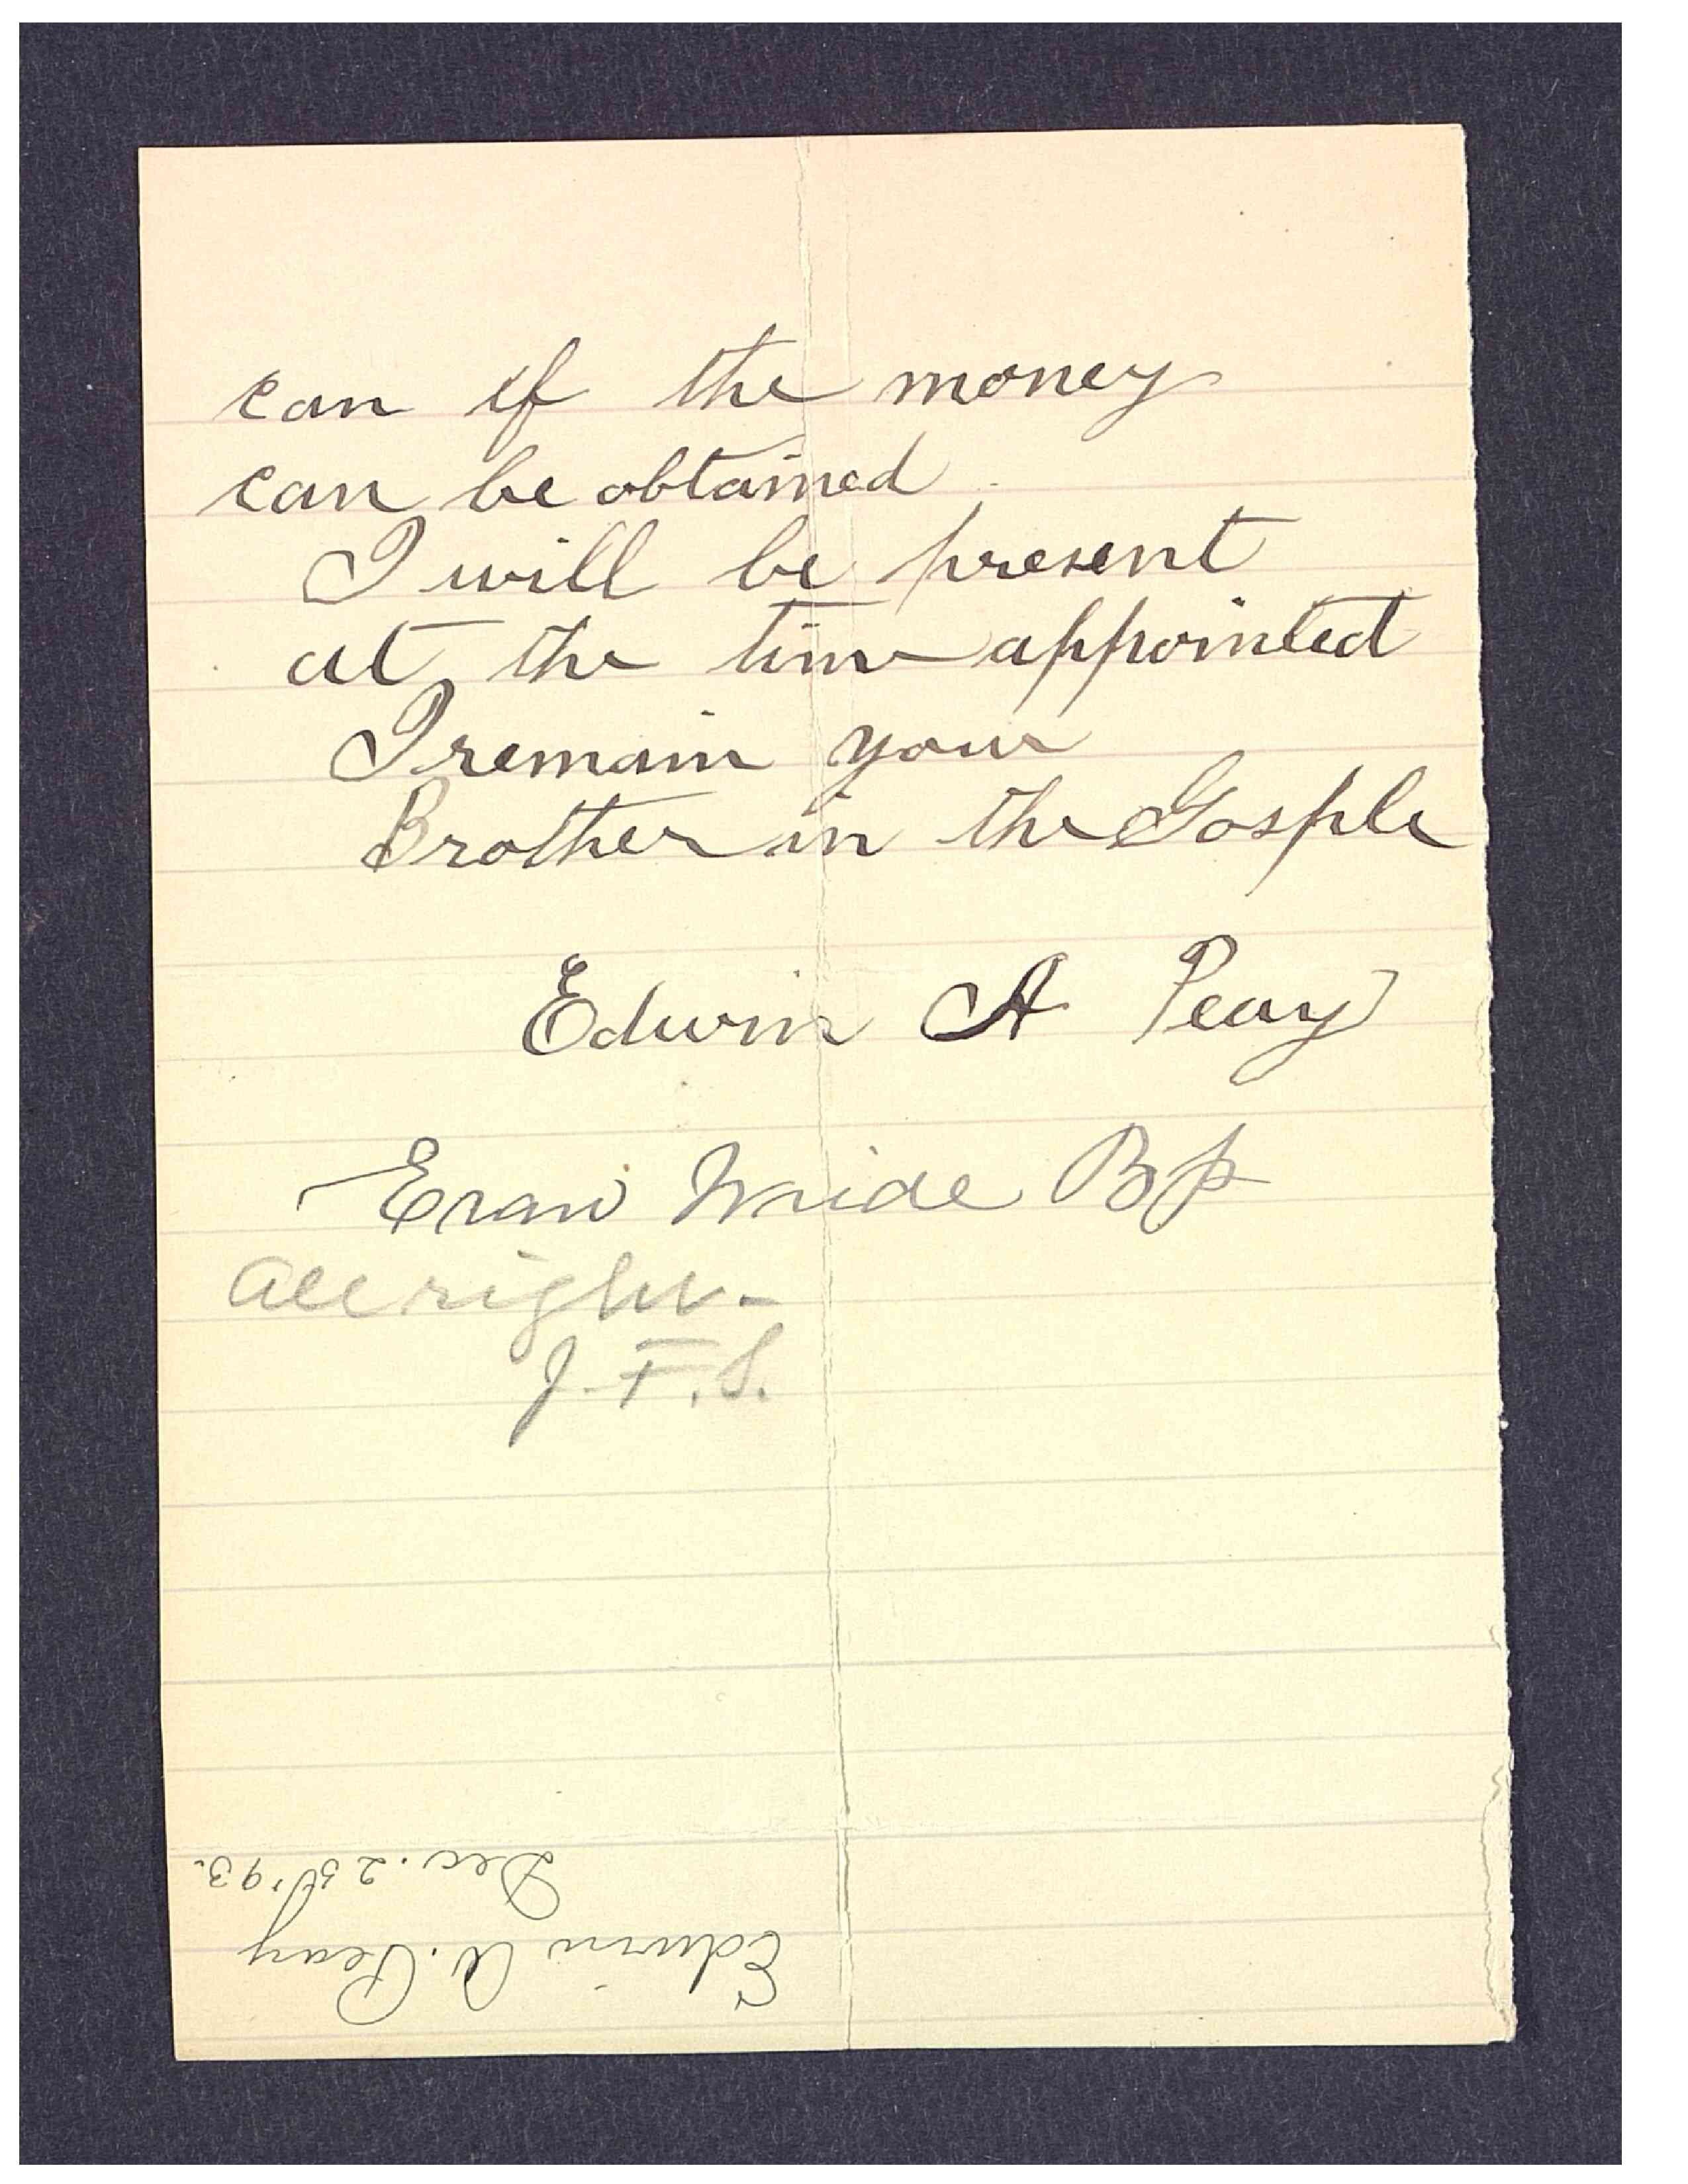 can if the money
can be obtained
I will be present
at the time appointed
I remain your
Brother in the Gosple
Edwin A Peay
Evan Wride Bp
all right-
J. F. S.
Edwin A. Peay
Dec. 93.